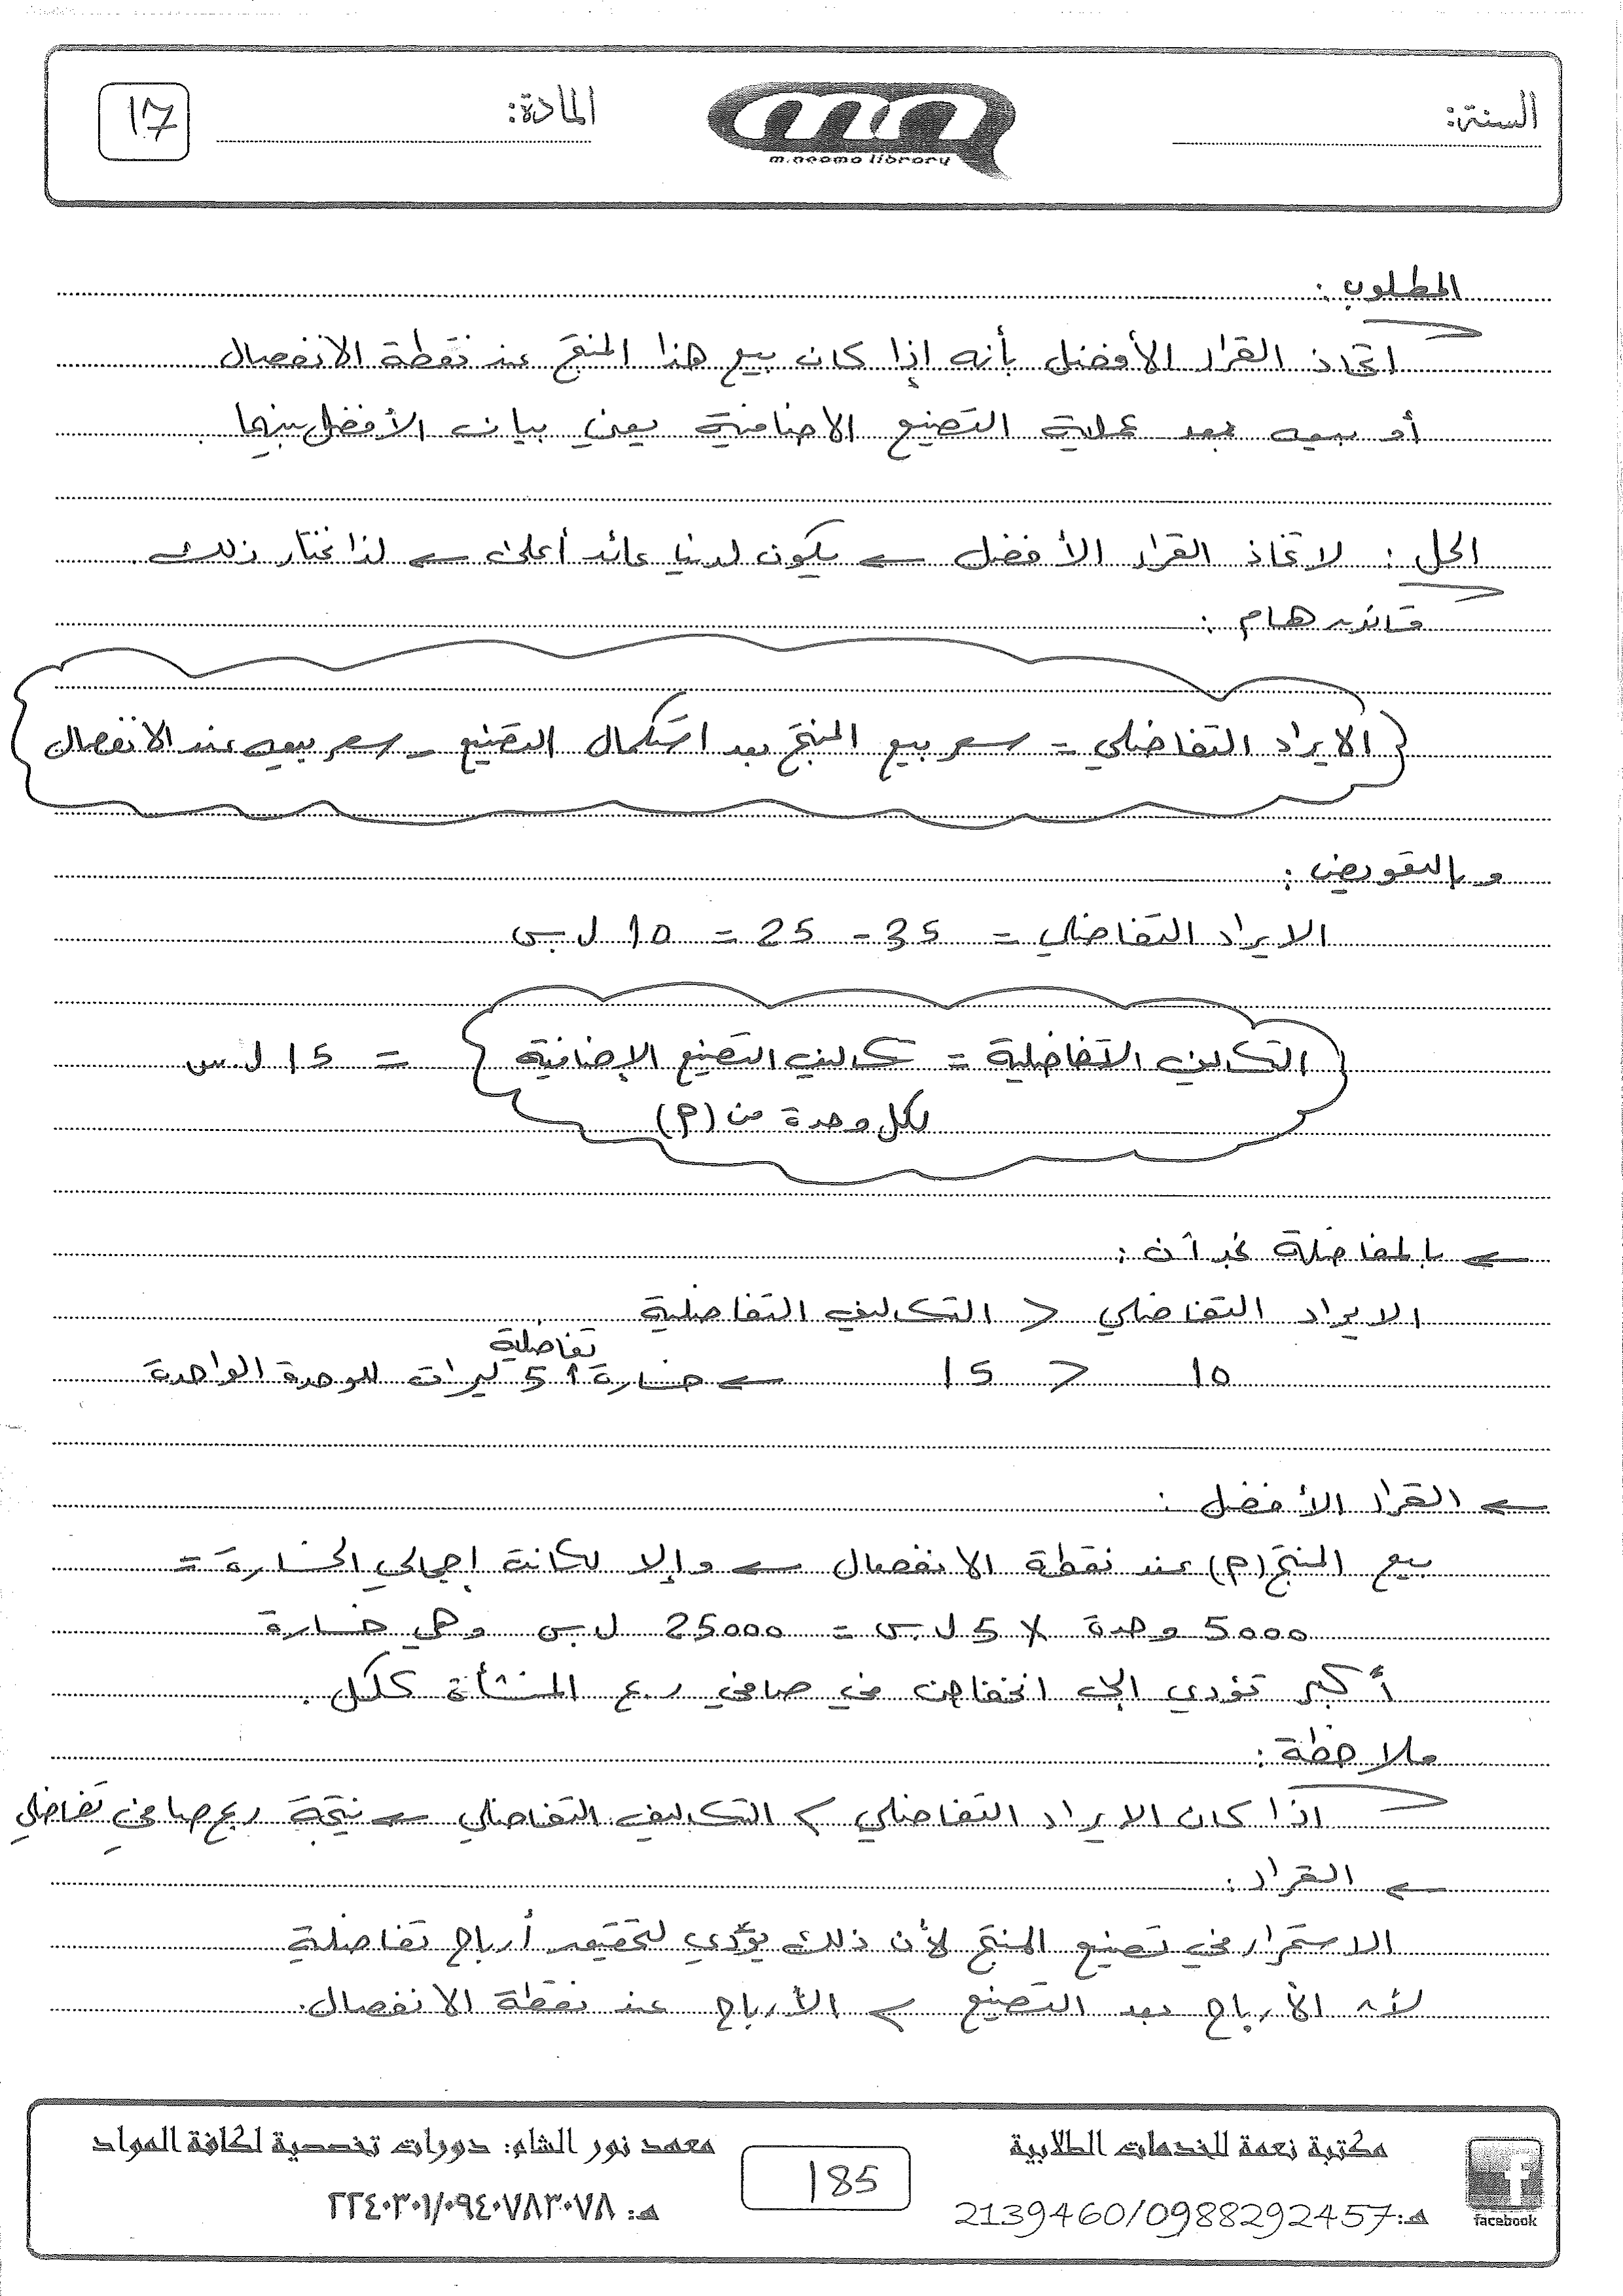 السنة:
m.neama library
المادة:
17
المطلوب:
اتخاذ القرار الأفضل بأنه إذا كان بيع هذا المنتج عند نقطة الانفصال
أو بيعه بعد عملية التصنيع الاضافية يعني بيان الأفضل بينهما.
الحل: لاتخاذ القرار الأفضل ← يكون لدينا عائد أعلى ← لذا نختار ذلك.
قانون هام:
الايراد التفاضلي = سعر بيع المنتج بعد استكمال التصنيع - سعر بيعه عند الانفصال
وبالتعويض:
الايراد التفاضلي = 35 - 25 = 10 ل.س
التكاليف التفاضلية = تكاليف التصنيع الإضافية = 15 ل.س
لكل وحدة من (م)
← بالمفاضلة نجد أن:
الايراد التفاضلي < التكاليف التفاضلية
تفاضلية
10 < 15 ← خسارة 5 ليرات للوحدة الواحدة
← القرار الأفضل:
بيع المنتج (م) عند نقطة الانفصال ← وإلا لكانت إجمالي الخسارة =
5000 وحدة × 5 ل.س = 25000 ل.س وهي خسارة
أكبر تؤدي إلى انخفاض في صافي ربح المنشأة ككل.
ملاحظة:
اذا كان الايراد التفاضلي > التكاليف التفاضلي ← نتيجة ربح صافي تفاضلي
← القرار:
الاستمرار في تصنيع المنتج لأن ذلك يؤدي لتحقيق أرباح تفاضلية
لأن الأرباح بعد التصنيع > الأرباح عند نقطة الانفصال.
مكتبة نعمة للخدمات الطلابية
هـ: 2139460/0988292457
facebook
185
معهد نور الشام: دورات تخصصية لكافة المواد
هـ: ٢٢٤٠٣٠١/٠٩٤٠٧٨٣٠٧٨